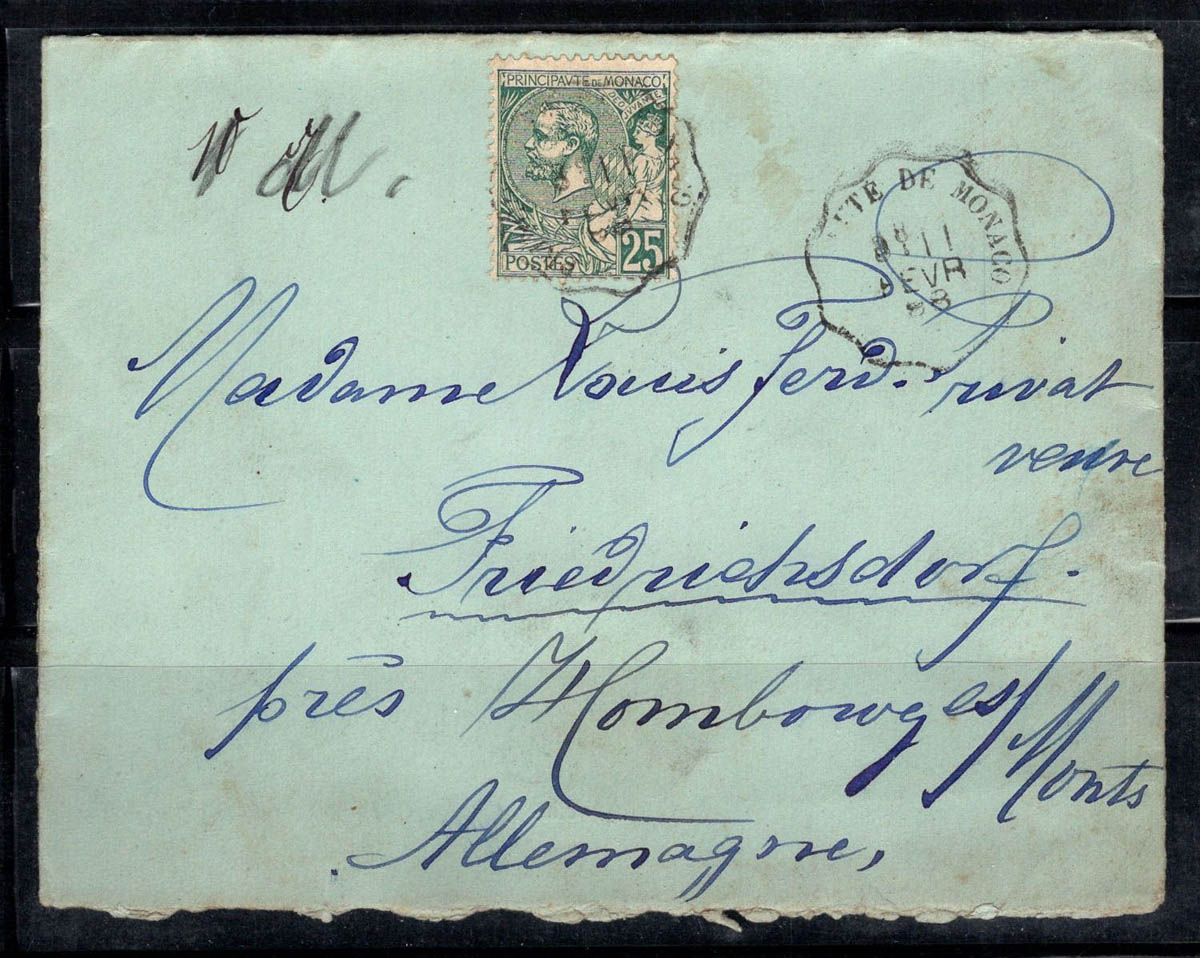 PRINCIPAVTE DE MONACO
25
POSTES
DE MONACO
11
EVR
Madame Louis Ferd. Privat
veuve
Friedrichsdorf.
près Hombourg es/Monts
Allemagne,